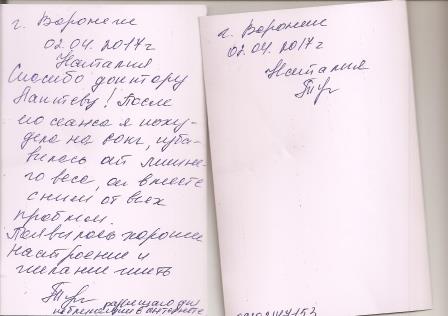 г. Воронеж
02.04.2017г
Наталия
Спасибо доктору
Лаптеву! После
его сеанса я поху-
дела на 20кг, изба-
вилась от лишне-
го веса, а вместе
с ним от всех
проблем.
Появилось хорошее
настроение и
желание жить
разрешаю для
публикации в интернете
г. Воронеж
02.04.2017г
Наталия